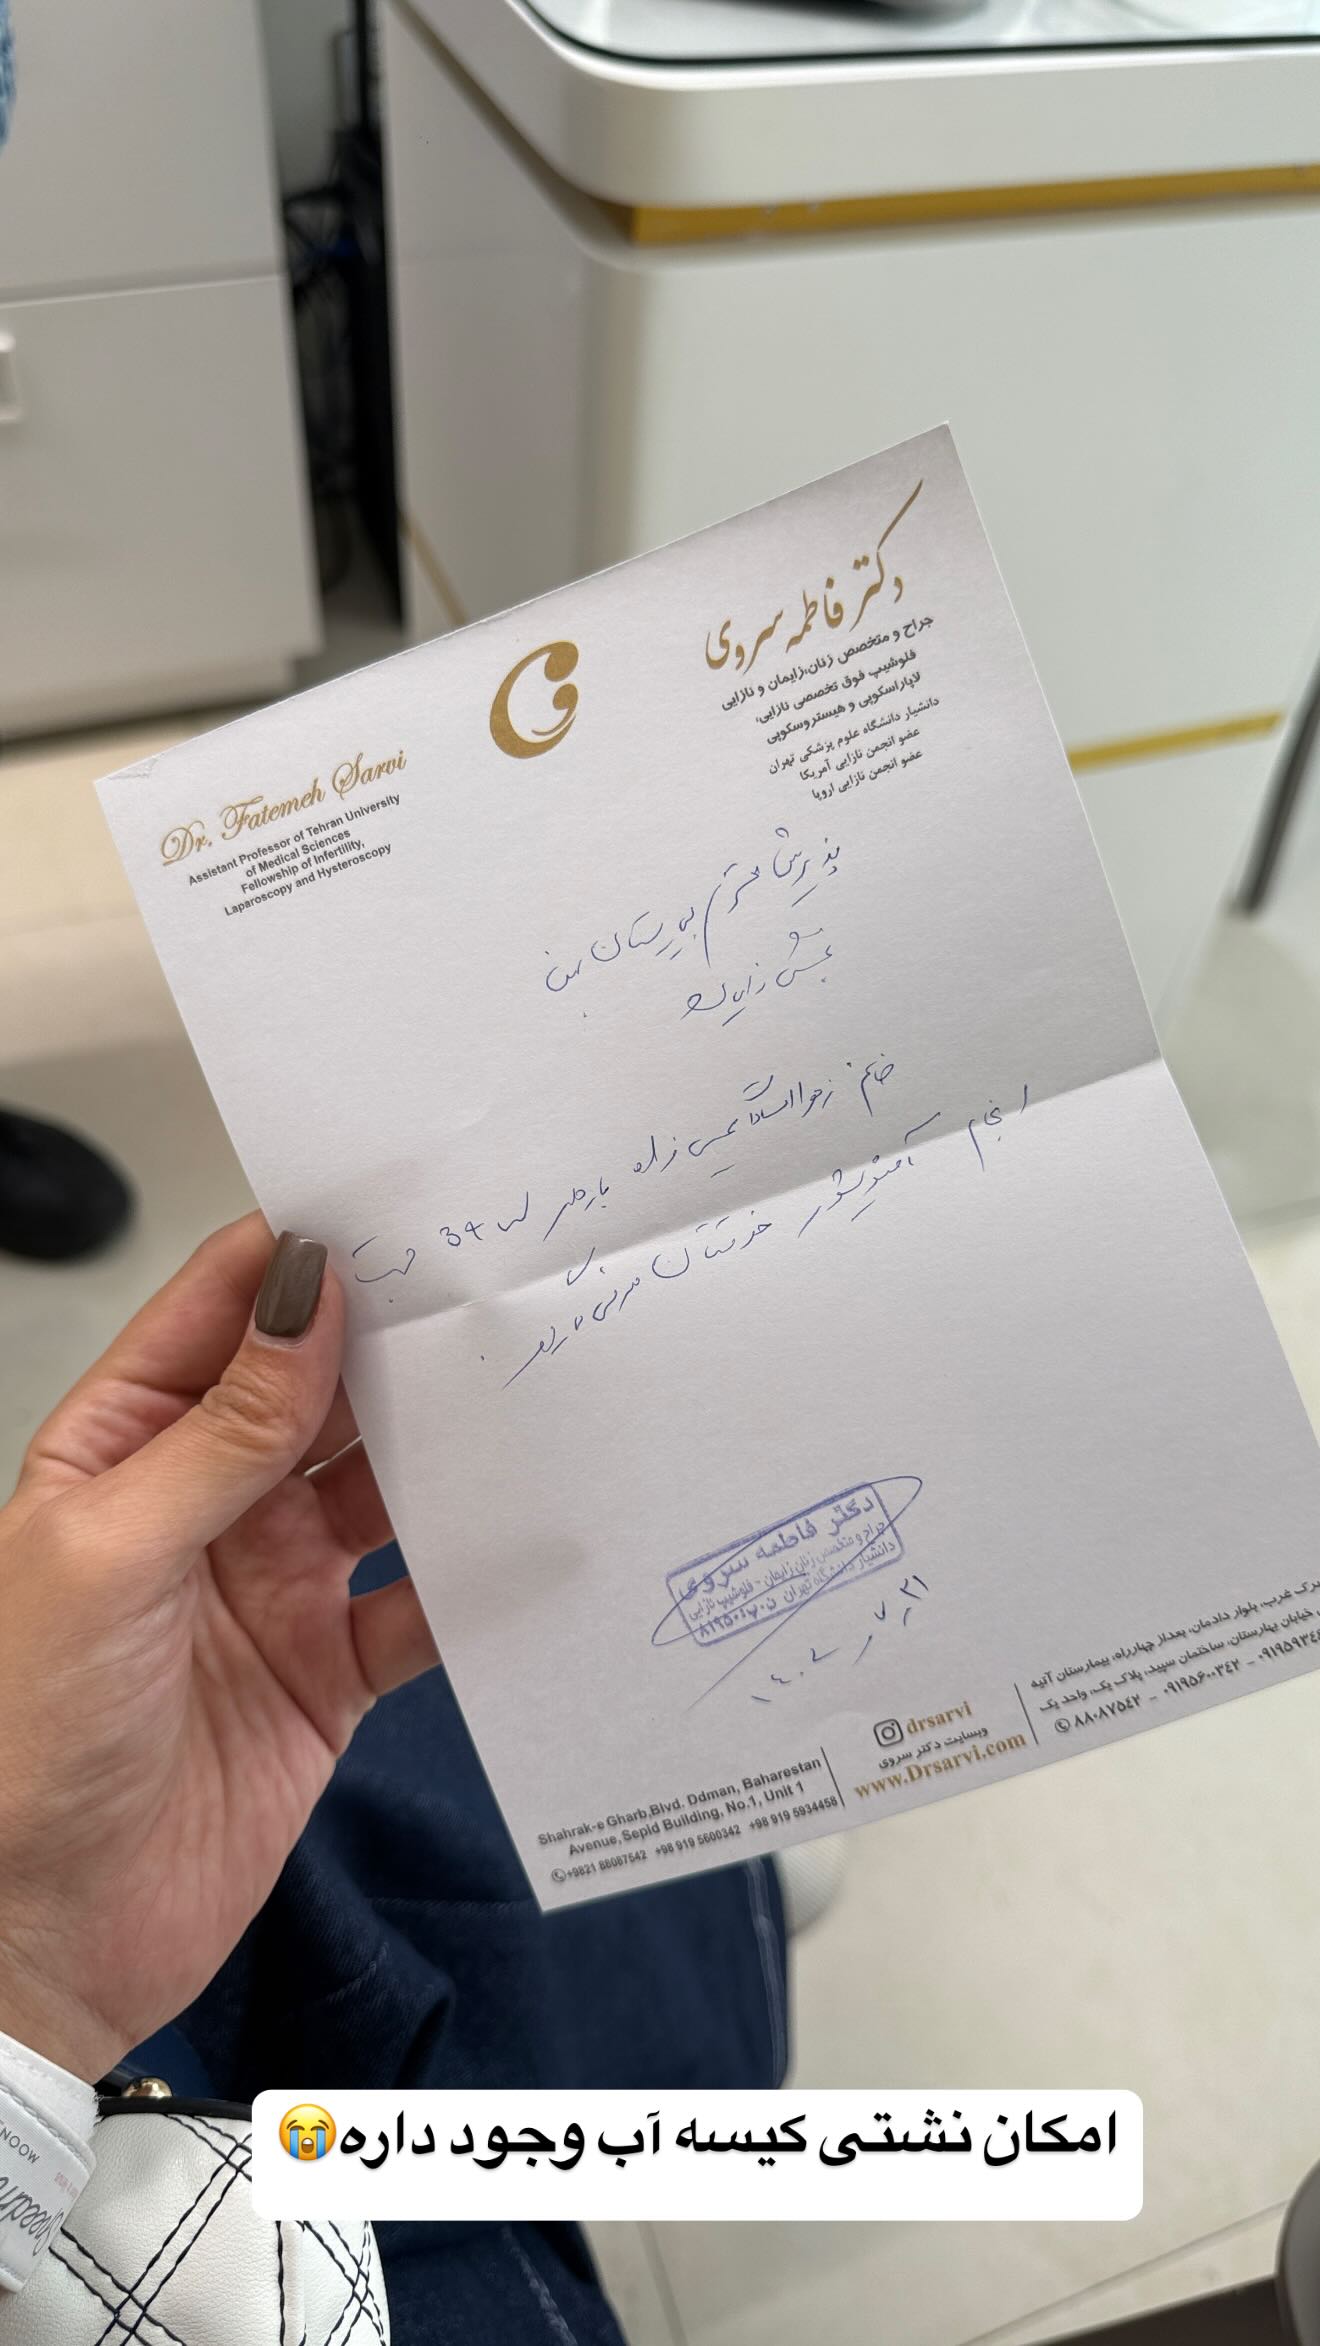 دکتر فاطمه سروی
جراح و متخصص زنان،زایمان و نازایی
فلوشیپ فوق تخصصی نازایی،
لاپاراسکوپی و هیستروسکوپی
دانشیار دانشگاه علوم پزشکی تهران
عضو انجمن نازایی آمریکا
عضو انجمن نازایی اروپا
Dr. Fatemeh Sarvi
Assistant Professor of Tehran University
of Medical Sciences
Fellowship of Infertility,
Laparoscopy and Hysteroscopy
پذیرش محترم بیمارستان
بخش زایمان
خانم زهرا السادات زاده باردار 39 جهت
انجام خدمتتان معرفی
دکتر فاطمه سروی
جراح و متخصص زنان زایمان - فلوشیپ نازایی
دانشیار دانشگاه تهران ن.پ: ۸۱۹۵۰
Shahrak-e Gharb,Blvd. Ddman, Baharestan
Avenue,Sepid Building, No.1, Unit 1
+9821 88087542 +98 919 5600342 +98 919 5934458
drsarvi
وبسایت دکتر سروی
www.Drsarvi.com
غرب، بلوار دادمان، بعداز چهارراه، بیمارستان آتیه
خیابان بهارستان، ساختمان سپید، پلاک یک، واحد یک
۸۸۰۸۷۵۴۲ - ۰۹۱۹۵۶۰۰۳۴۲ -
MOON
امکان نشتی کیسه آب وجود داره😭